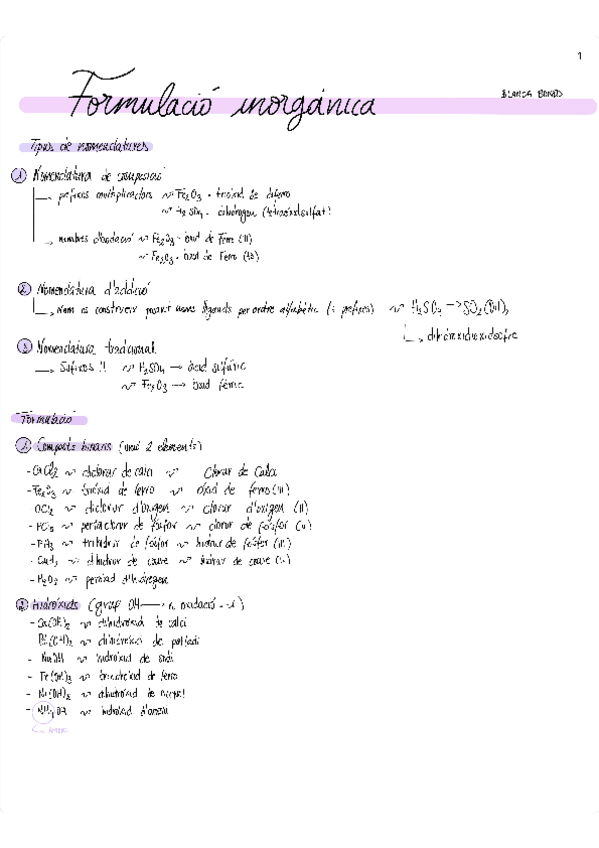 1
Formulació inorgánica
BLANCA
Tipus de nomenclatures
1 Nomenclatura de composició
prefixes multiplicadors Fe₂O₃ · trioxid de diferro
H₂SO₄ · dihidrogen (tetraoxidsulfat)
nombres d'oxidació Fe₂O₃ · oxid de Ferro (III)
Fe₂O₃ · oxid de Ferro
2 Nomenclatura d'addició
nom es construeix posant noms lligands per ordre alfabètic (i prefixes) H₂SO₄ → SO₂(OH)₂
3 Nomenclatura tradicional
Sufixos !! H₂SO₄ → àcid sulfúric
Fe₂O₃ → òxid fèrric
Formulació
1 Composts binaris (unió 2 elements)
- CaCl₂ diclorur de calci Clorur de Calci
- Fe₂O₃ trioxid de ferro oxid de ferro (III)
OCl₂ diclorur d'oxigen clorur d'oxigen (II)
- PCl₅ pentaclorur de fosfor clorur de fosfor (V)
- PH₃ trihidrur de fosfor hidrur de fosfor (III)
dihidrur de coure hidrur de coure
- H₂O₂ peroxid d'hidrogen
2 Hidròxids (grup OH n. oxidació -1)
- Ca(OH)₂ dihidroxid de calci
dihidroxid de pal·ladi
- NaOH hidroxid de sodi
- Fe(OH)₃ trihidroxid de ferro
- Ni(OH)₂ dihidroxid de niquel
- NH₄OH hidroxid d'amoni